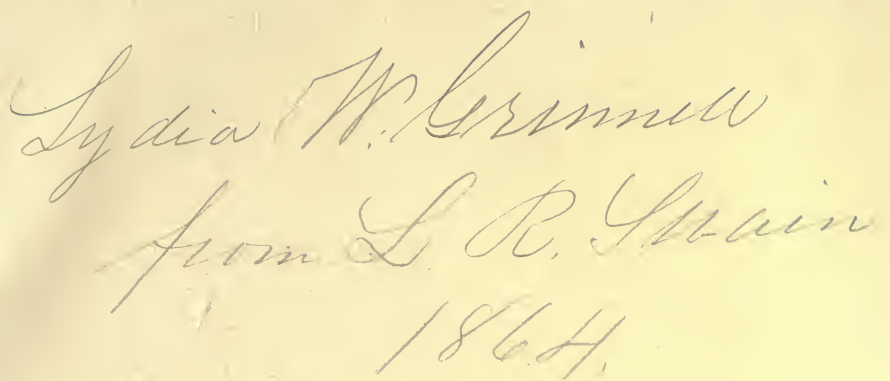 Lydia W. Grinnell
from L. R. Swain
1864.